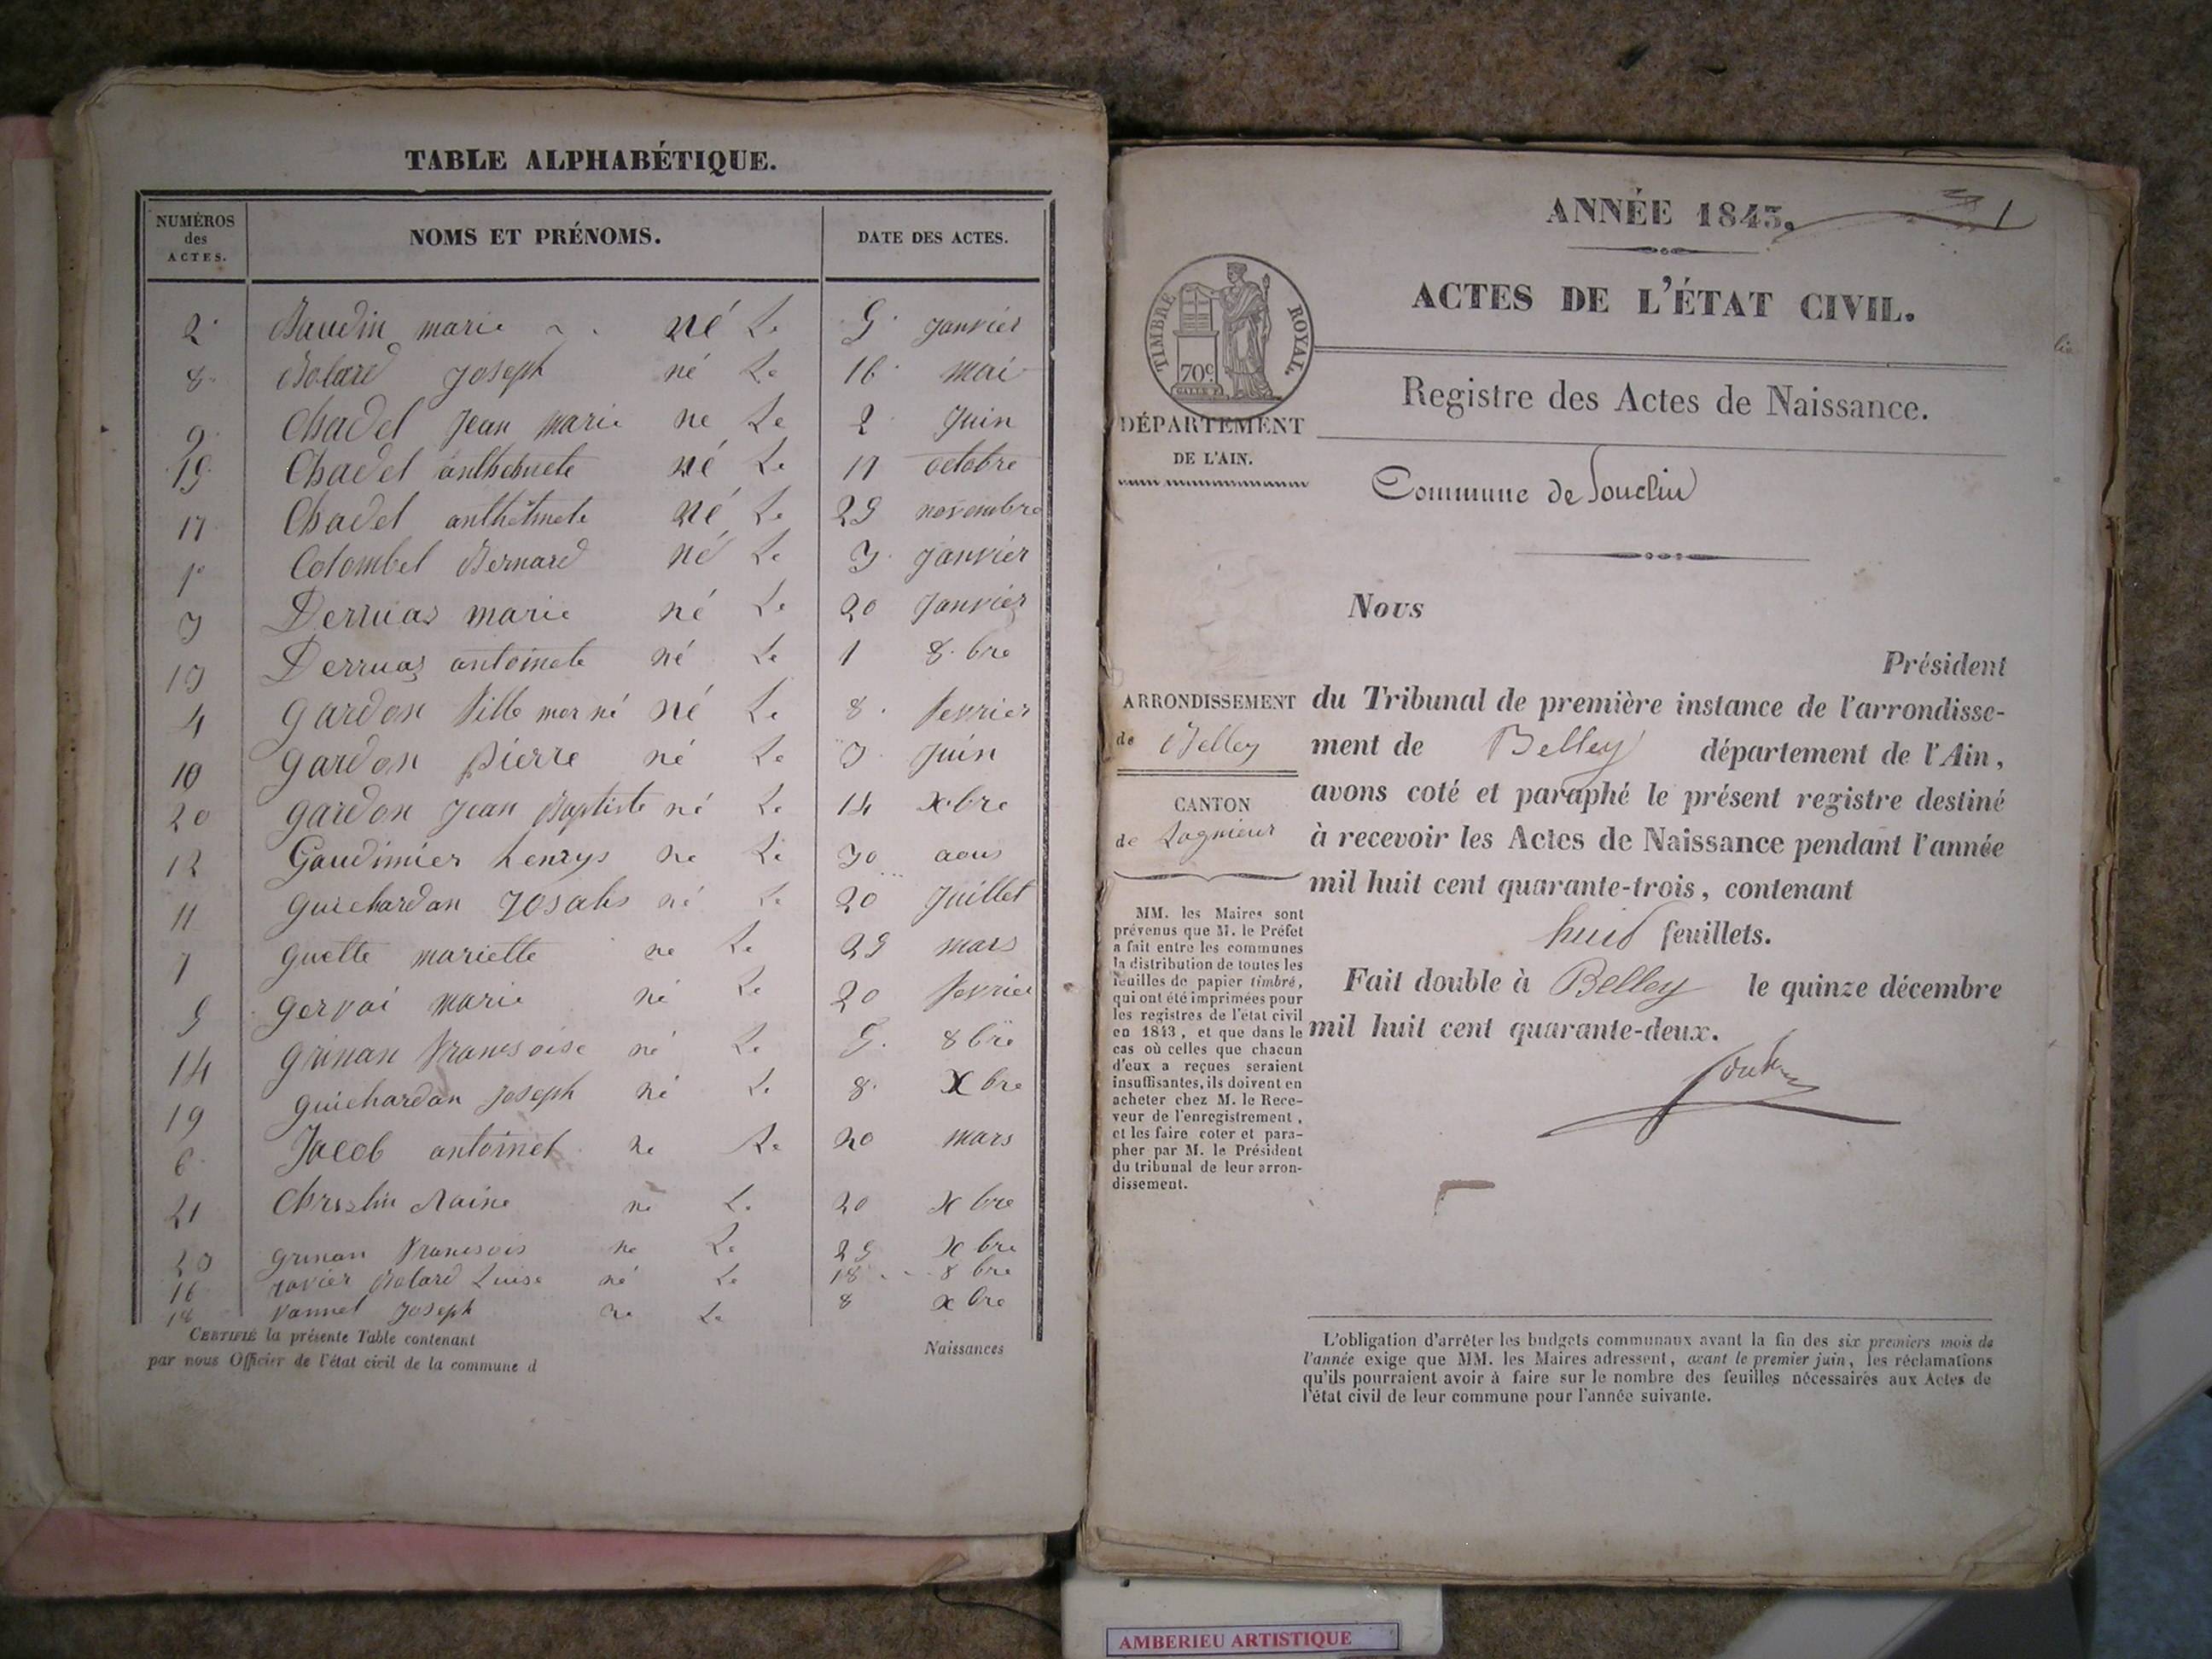 TABLE ALPHABÉTIQUE.
NUMÉROS
des
ACTES.
NOMS ET PRÉNOMS.
DATE DES ACTES.
2 Baudin marie né Le 5 janvier
8 Bolard Joseph né Le 16 mai
9 Chadel Jean marie ne Le 2 Juin
15 Chadel né Le 17 octobre
17 Chadel né Le 25 novembre
1 Colombel Bernard né Le 3 janvier
3 Derruas marie né Le 20 Janvier
13 Derruas antoinete né Le 1 8.bre
4 gardon né Le 8 fevrier
10 gardon pierre né Le 3 juin
20 gardon Jean Baptiste né Le 14 xbre
12 Gaudimier henrys ne Le 30 aous
11 guichardan né Le 20 Juillet
7 guette mariette ne Le 25 mars
5 gervai marie né Le 20 fevrier
14 grinan françoise né Le 5. 8bre
19 guichardan joseph né Le 8. Xbre
6 Jacob antoinet ne Le 20 mars
21 né Le 20 xbre
23 grinan françois ne Le 25 xbre
16 Bolard Luise né Le 18 8bre
18 Vannel Joseph ne Le 8 xbre
CERTIFIÉ la présente Table contenant Naissances
par nous Officier de l'état civil de la commune d
ANNÉE 1843. 1
ACTES DE L'ÉTAT CIVIL.
TIMBRE ROYAL.
70c
Registre des Actes de Naissance.
DÉPARTEMENT
DE L'AIN.
Commune de Souclin
Nous
Président
ARRONDISSEMENT
de Belley
CANTON
de Lagnieux
du Tribunal de première instance de l'arrondisse-
ment de Belley département de l'Ain,
avons coté et paraphé le présent registre destiné
à recevoir les Actes de Naissance pendant l'année
mil huit cent quarante-trois, contenant
huit feuillets.
Fait double à Belley le quinze décembre
mil huit cent quarante-deux.
MM. les Maires sont
prévenus que M. le Préfet
a fait entre les communes
la distribution de toutes les
feuilles de papier timbré,
qui ont été imprimées pour
les registres de l'état civil
en 1843, et que dans le
cas où celles que chacun
d'eux a reçues seraient
insuffisantes, ils doivent en
acheter chez M. le Rece-
veur de l'enregistrement,
et les faire coter et para-
pher par M. le Président
du tribunal de leur arron-
dissement.
L'obligation d'arrêter les budgets communaux avant la fin des six premiers mois de
l'année exige que MM. les Maires adressent, avant le premier juin, les réclamations
qu'ils pourraient avoir à faire sur le nombre des feuilles nécessaires aux Actes de
l'état civil de leur commune pour l'année suivante.
AMBERIEU ARTISTIQUE